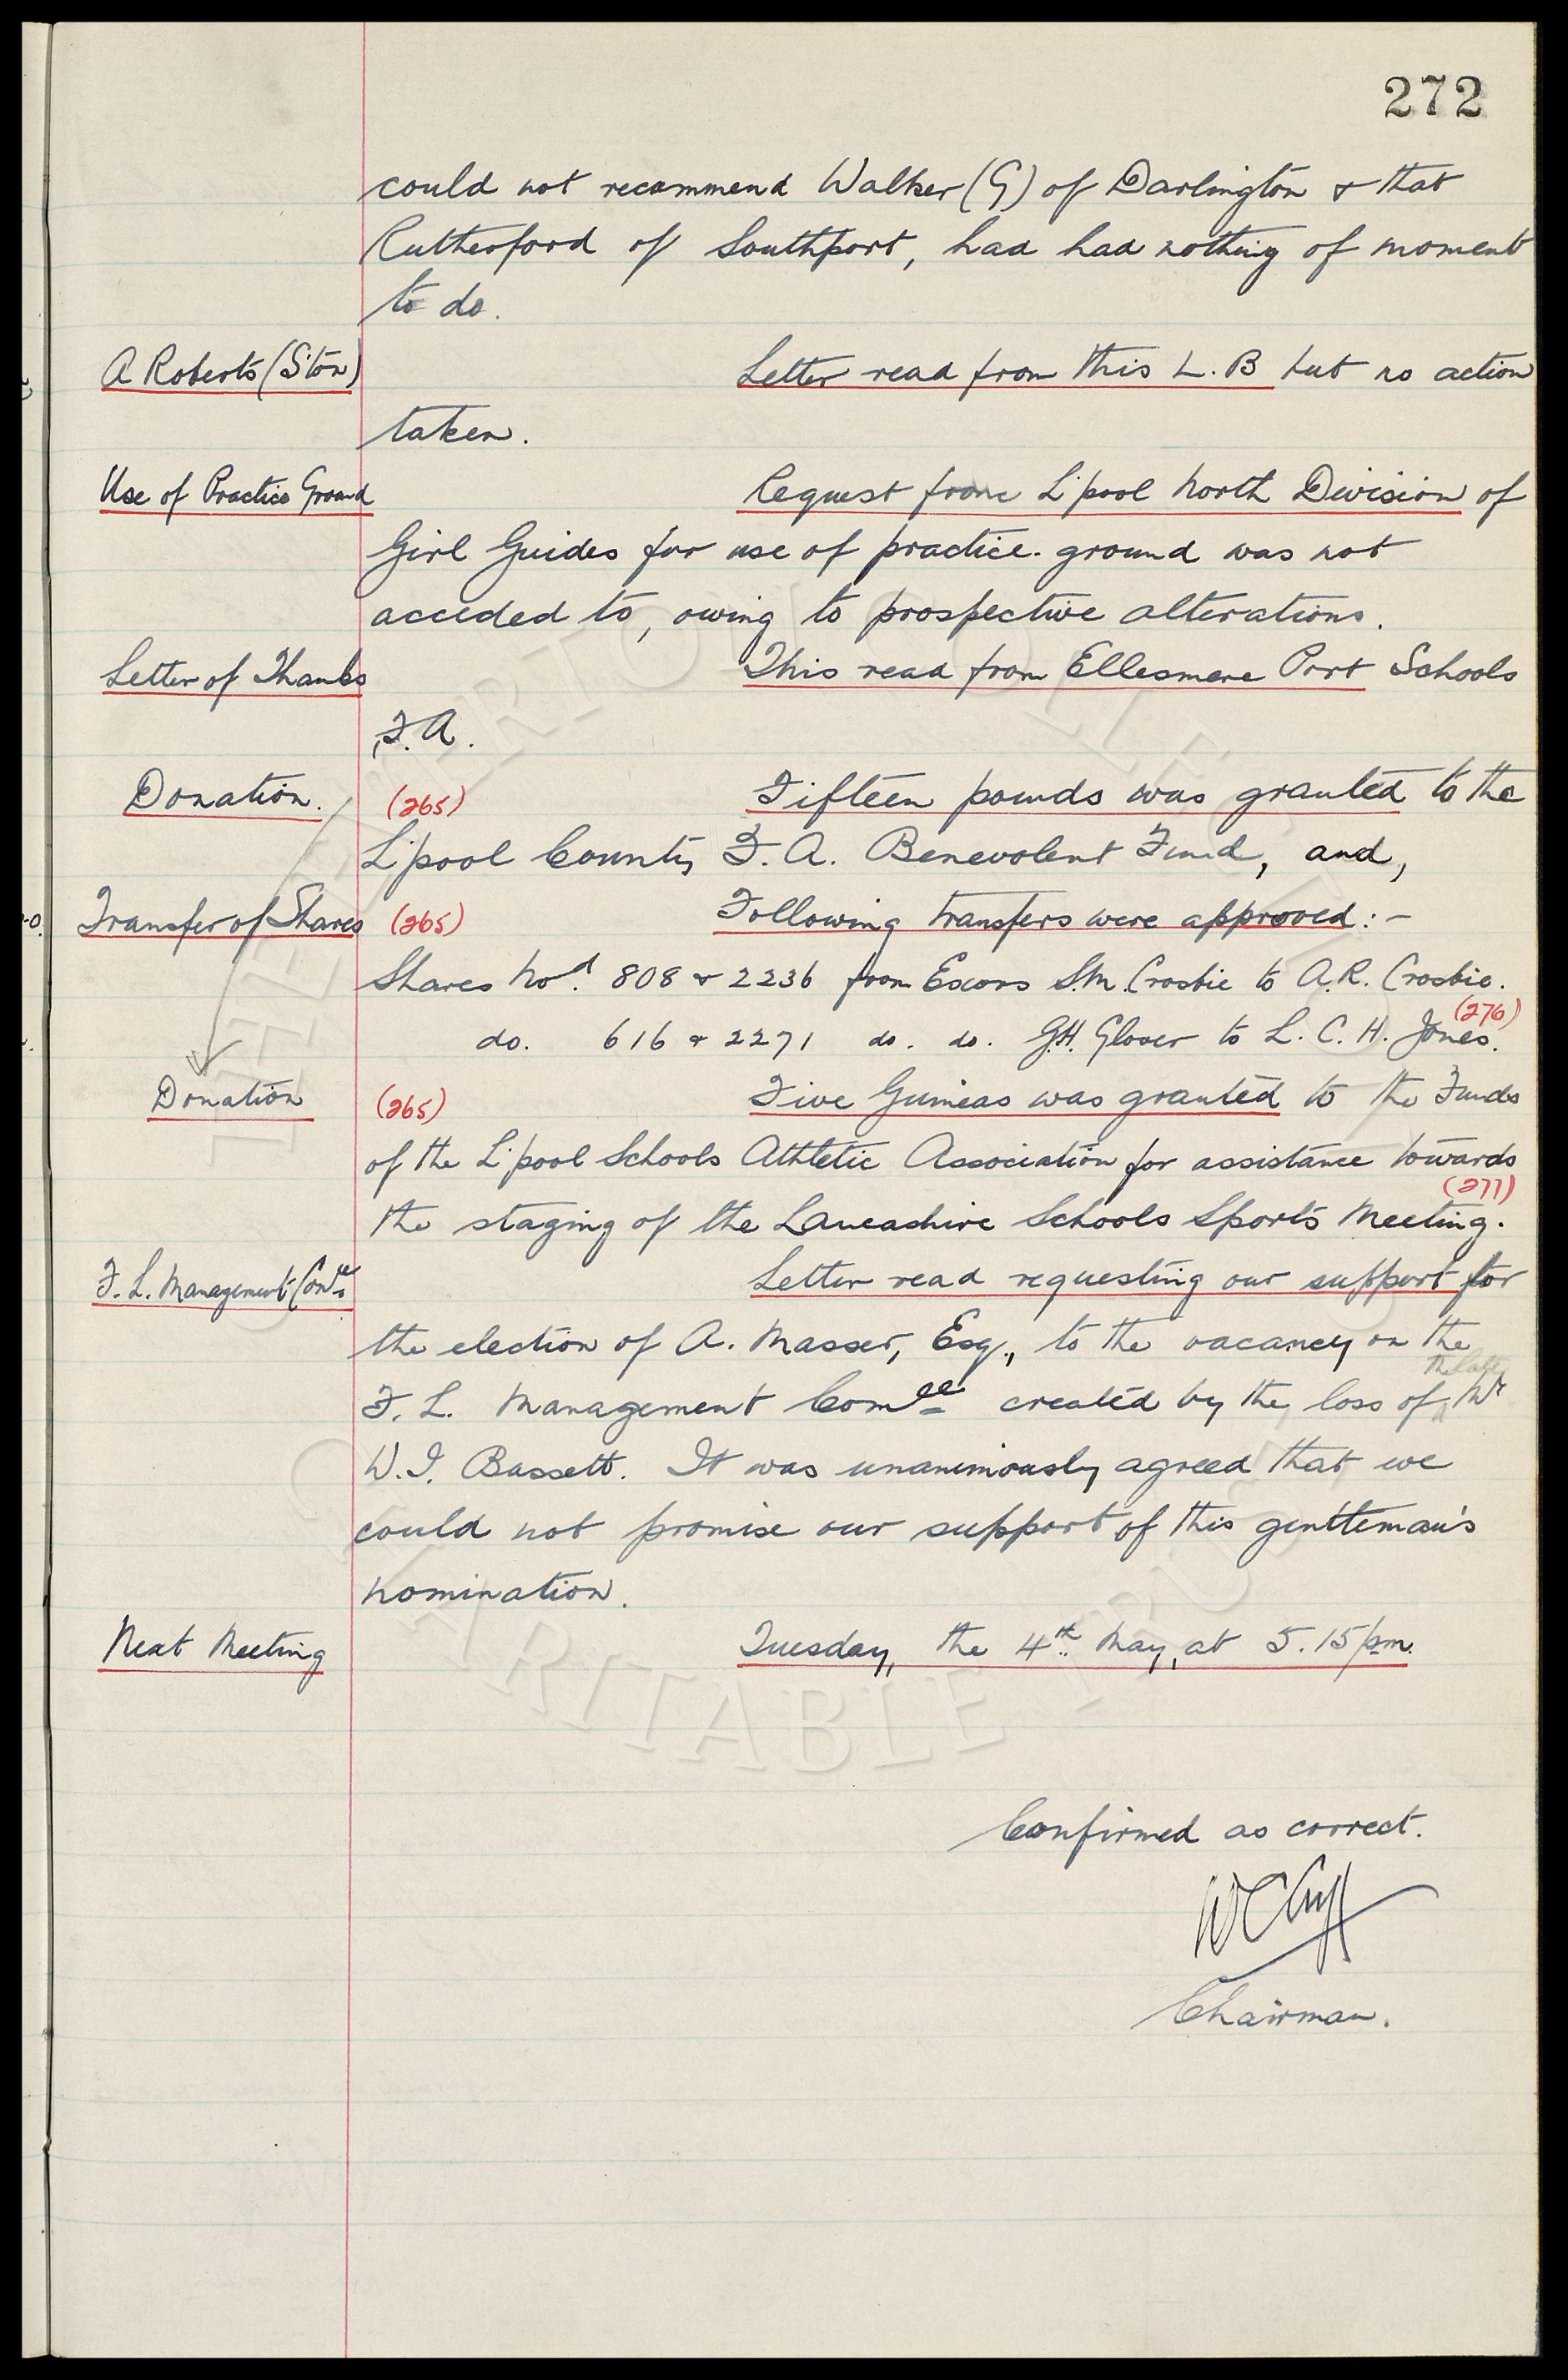 272
could not recommend Walker (G) of Darlington & that
Rutherford of Southport, had had nothing of moment
to do.
A Roberts (S'ton) Letter read from this L. B but no action
taken.
Use of Practice Ground Request from L'pool North Division of
Girl Guides for use of practice ground was not
acceded to, owing to prospective alterations.
Letter of Thanks This read from Ellesmere Port Schools
F.A.
Donation. (265) Fifteen pounds was granted to the
L'pool County F. A. Benevolent Fund, and,
Transfer of Shares (265) Following transfers were approved:-
Shares Nod. 808 & 2236 from Exors S.M. Crosbie to A.R. Crosbie.
(276)
do. 616 & 2271 do. do. G.H. Glover to L. C. H. Jones.
Donation (265) Five Guineas was granted to the Funds
of the L'pool Schools Athletic Association for assistance towards
(277)
the staging of the Lancashire Schools Sports Meeting.
F. L. Management Comee Letter read requesting our support for
the election of A. Masser, Esq., to the vacancy on the
the late
F. L. Management Comee created by the loss of Mr
W.I. Bassett. It was unanimously agreed that we
could not promise our support of this gentleman's
nomination.
Next Meeting Tuesday, the 4th May, at 5.15 pm.
Confirmed as correct.
W C Cuff
Chairman.
CHARITABLE